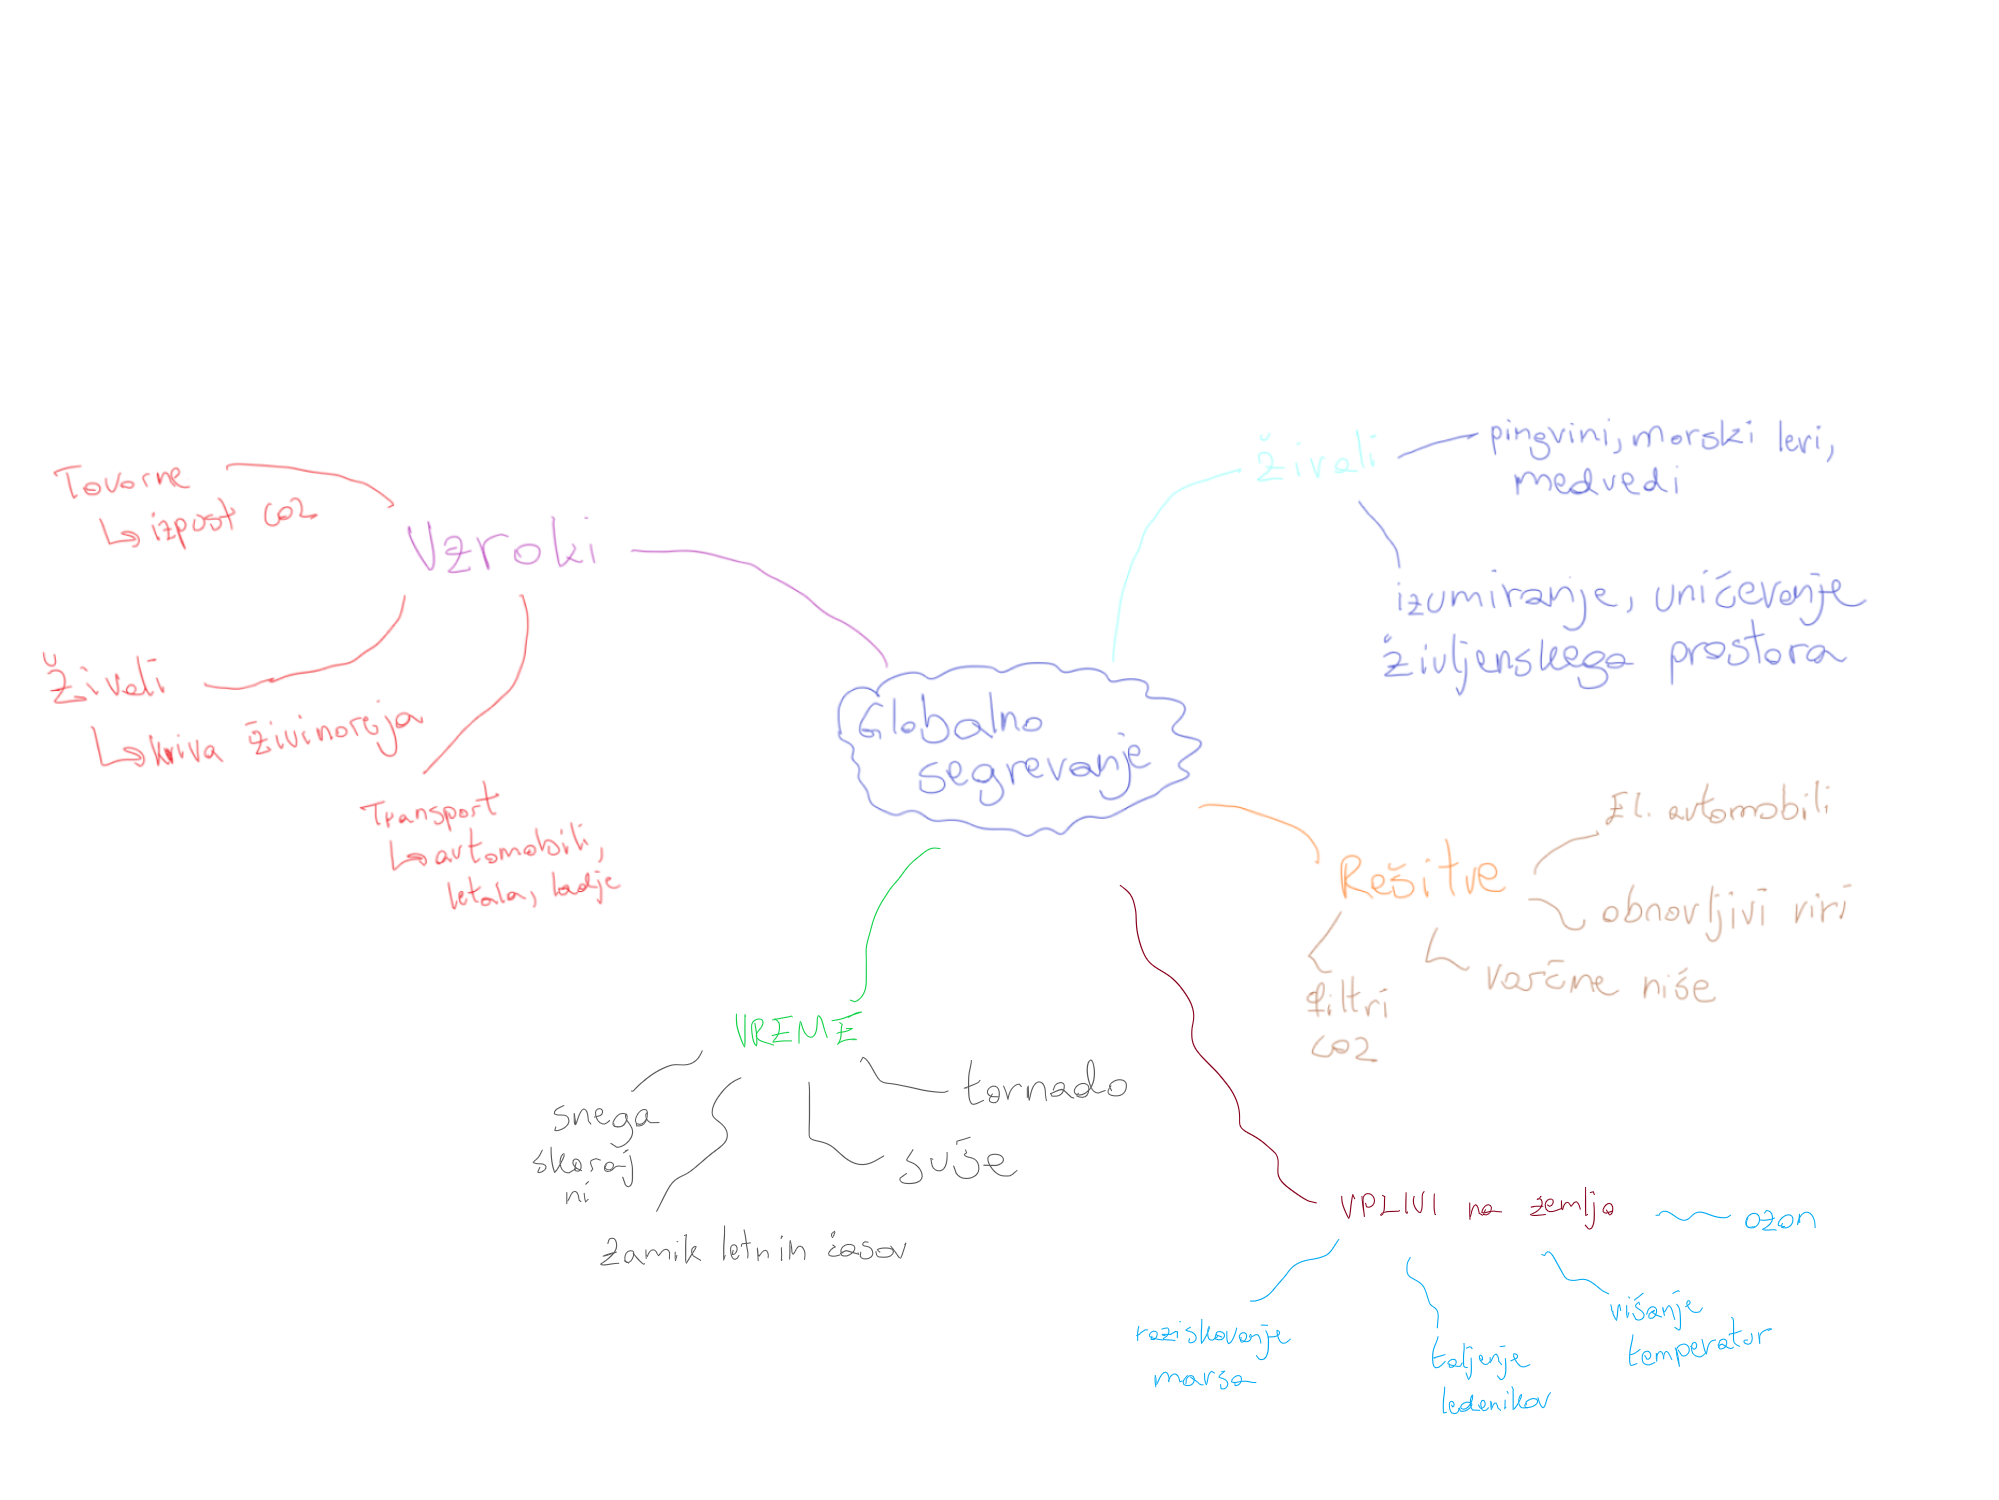 Globalno
segrevanje
Vzroki
Tovorne
↳ izpust CO2
Živali
↳ kriva živinoreja
Transport
↳ avtomobili,
letala, ladje
Živali
pingvini, morski levi,
medvedi
izumiranje, uničevanje
življenskega prostora
Rešitve
El. avtomobili
obnovljivi viri
varčne niše
filtri
CO2
VREME
snega
skoraj
ni
zamik letnih časov
suše
tornado
VPLIVI na zemljo
ozon
višanje
temperatur
taljenje
ledenikov
raziskovanje
marsa